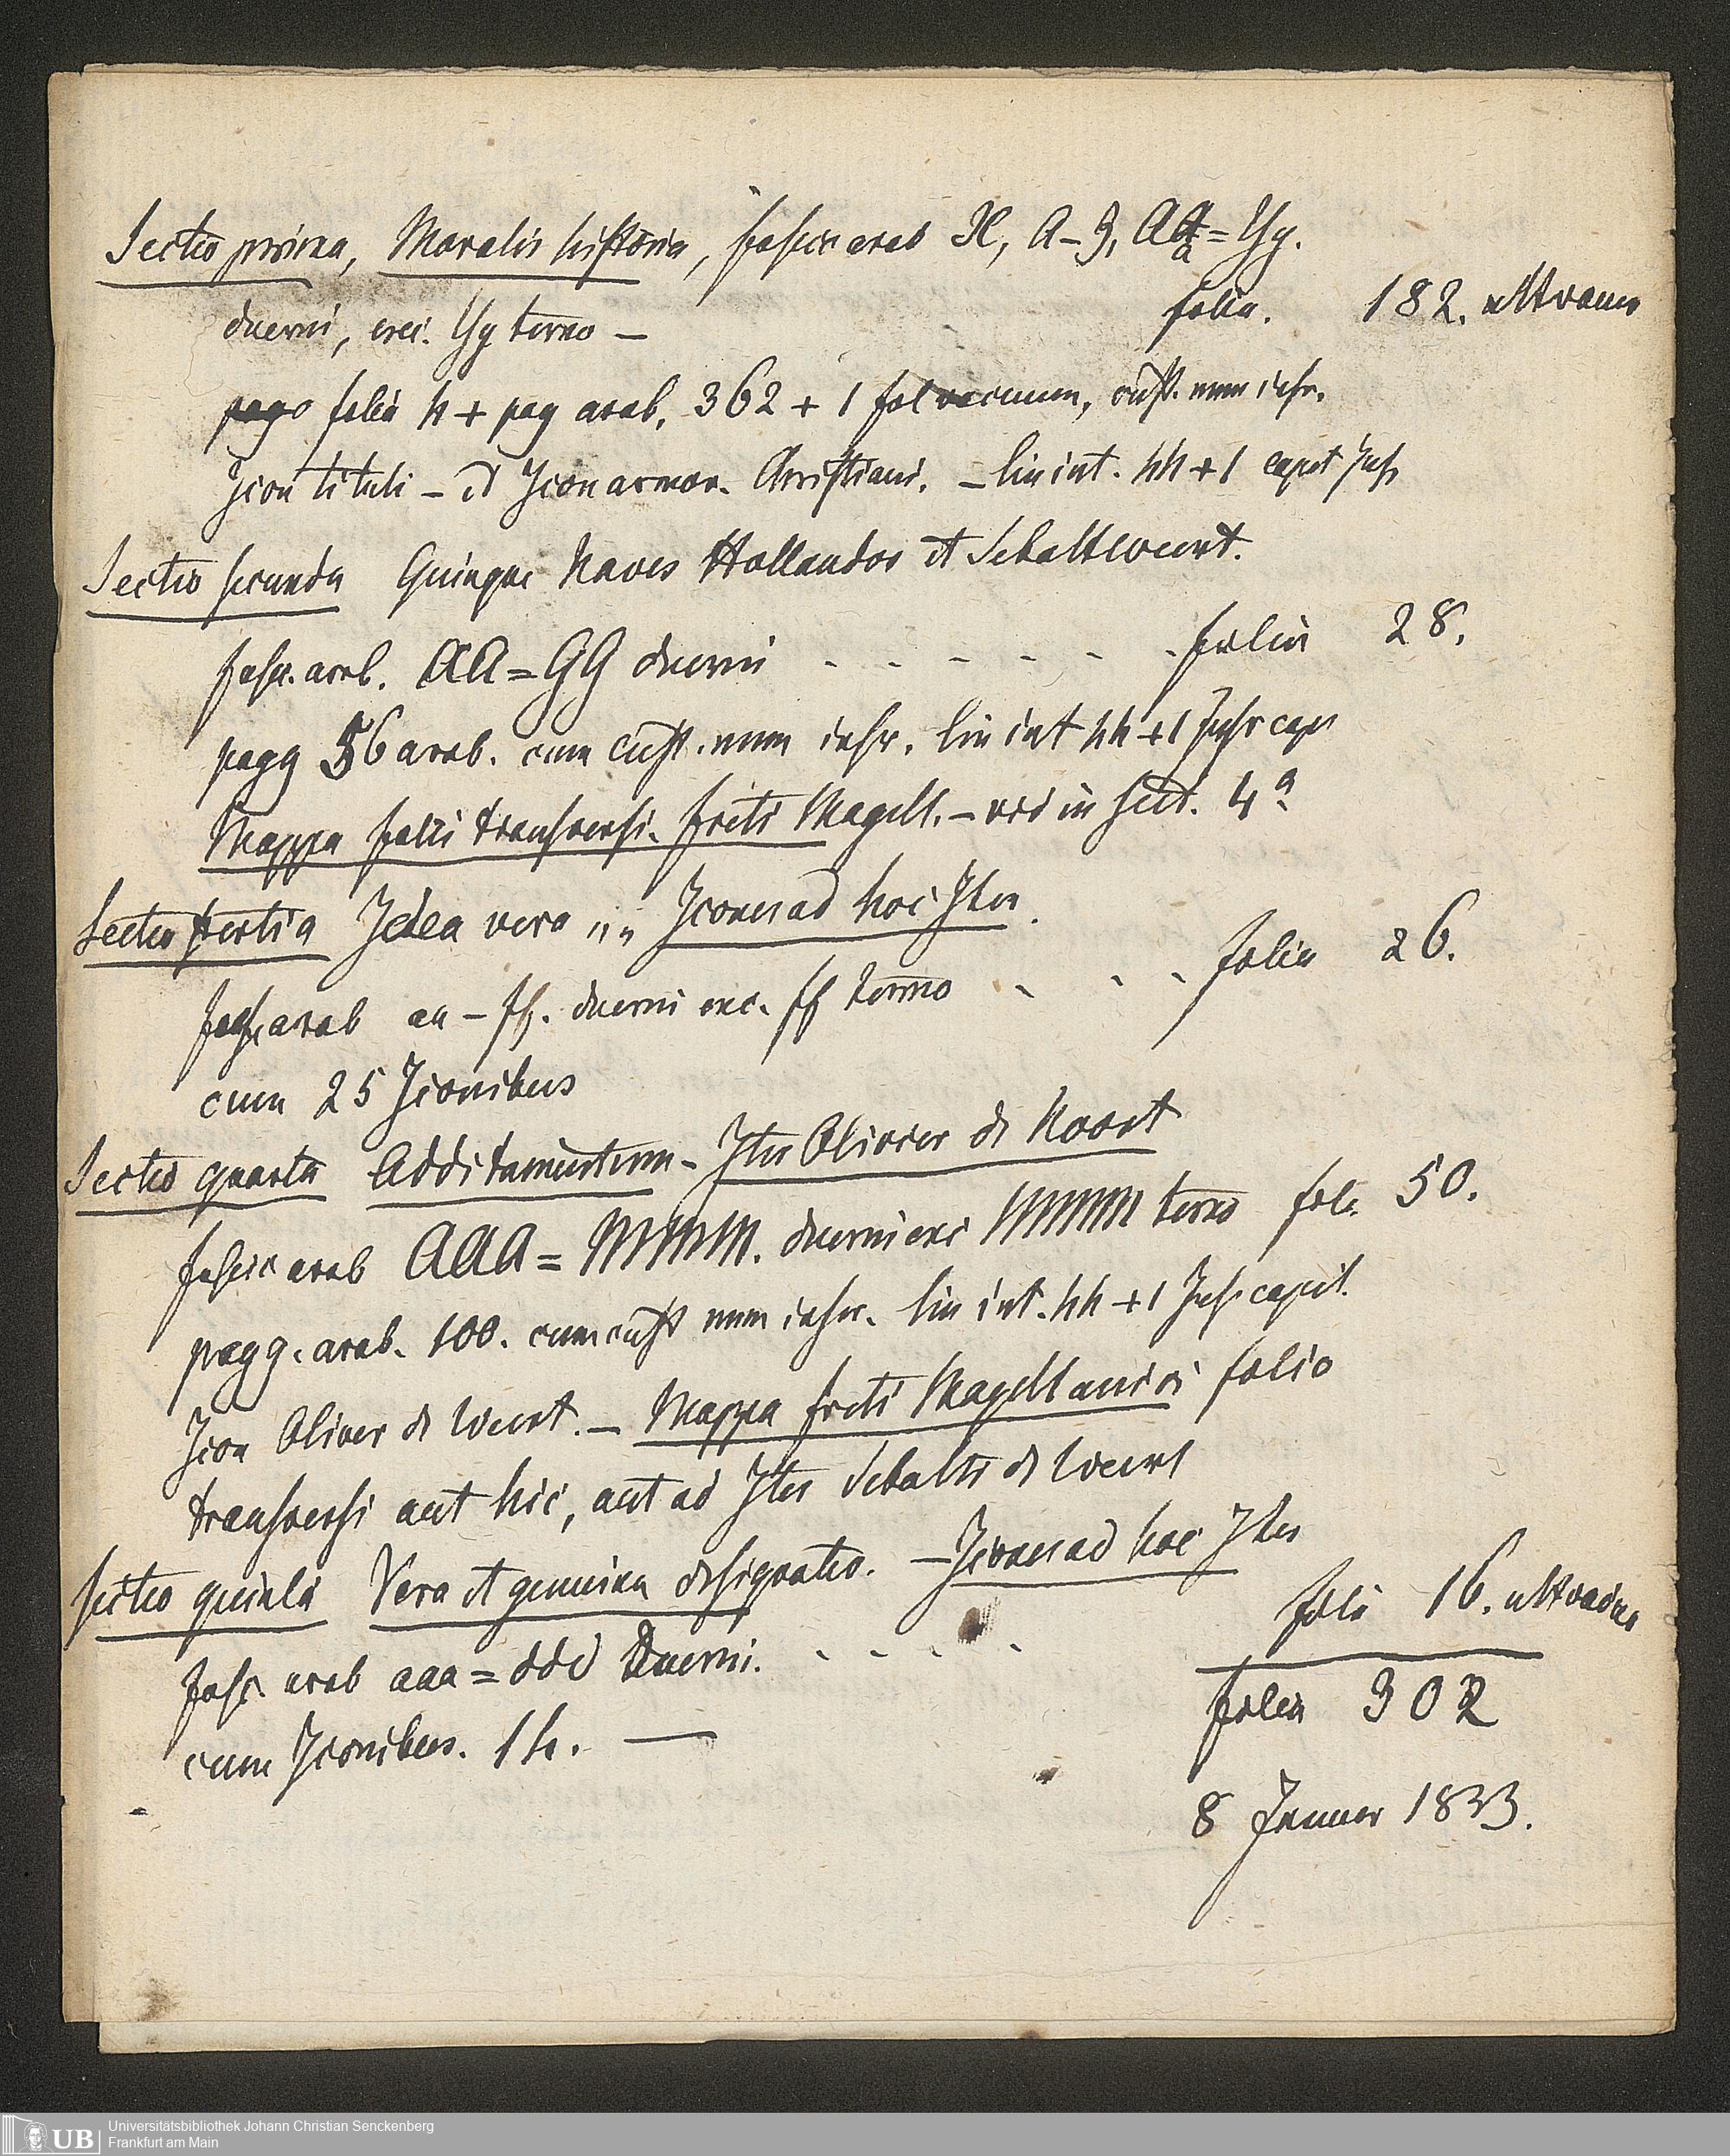 Sectio prima, Moralis historia, fascic arab X, A-Z, AA = Yy.
duerni, exc. Yy terno —
folia. 182. ult vacuo
folia 4 + pag arab. 362 + 1 fol vacuum, cust. num infr.
Icon tituli – et Icon armor. Christiani. – lin int. 44 + 1 capit
Sectio secunda Quinque Naves Hollandor et Sebalt Weert.
fasc. arab. AA = GG duerni - - - - - - folia 28.
pagg 56 arab. cum cust. num infr. lin int 44 + 1
Mappa folii transversi. freti Magell. – vid in sect. 4a
Sectio tertia Idea vera „ „ Icones ad hoc Iter.
fasc. arab aa – ff. duerni exc. ff terno - - - folia 26.
cum 25 Iconibus
Sectio quarta Additamentum – Iter Olivier de Noort
fascic arab AAA = MMM. duerni exc MMM terno fol. 50.
pagg. arab. 100. cum cust num infr. lin int. 44 + 1 capit.
Icon Oliver de Weert. – Mappa freti Magellanici folio
transversi aut hic, aut ad Iter Sebalti de Weert
Sectio quinta Vera et genuina designatio. – Icones ad hoc Iter
fasc. arab aaa = ddd Duerni. - - - -
foli 16. ult vacua
cum Iconibus. 14. —
folia 302
8 Januer 1833.